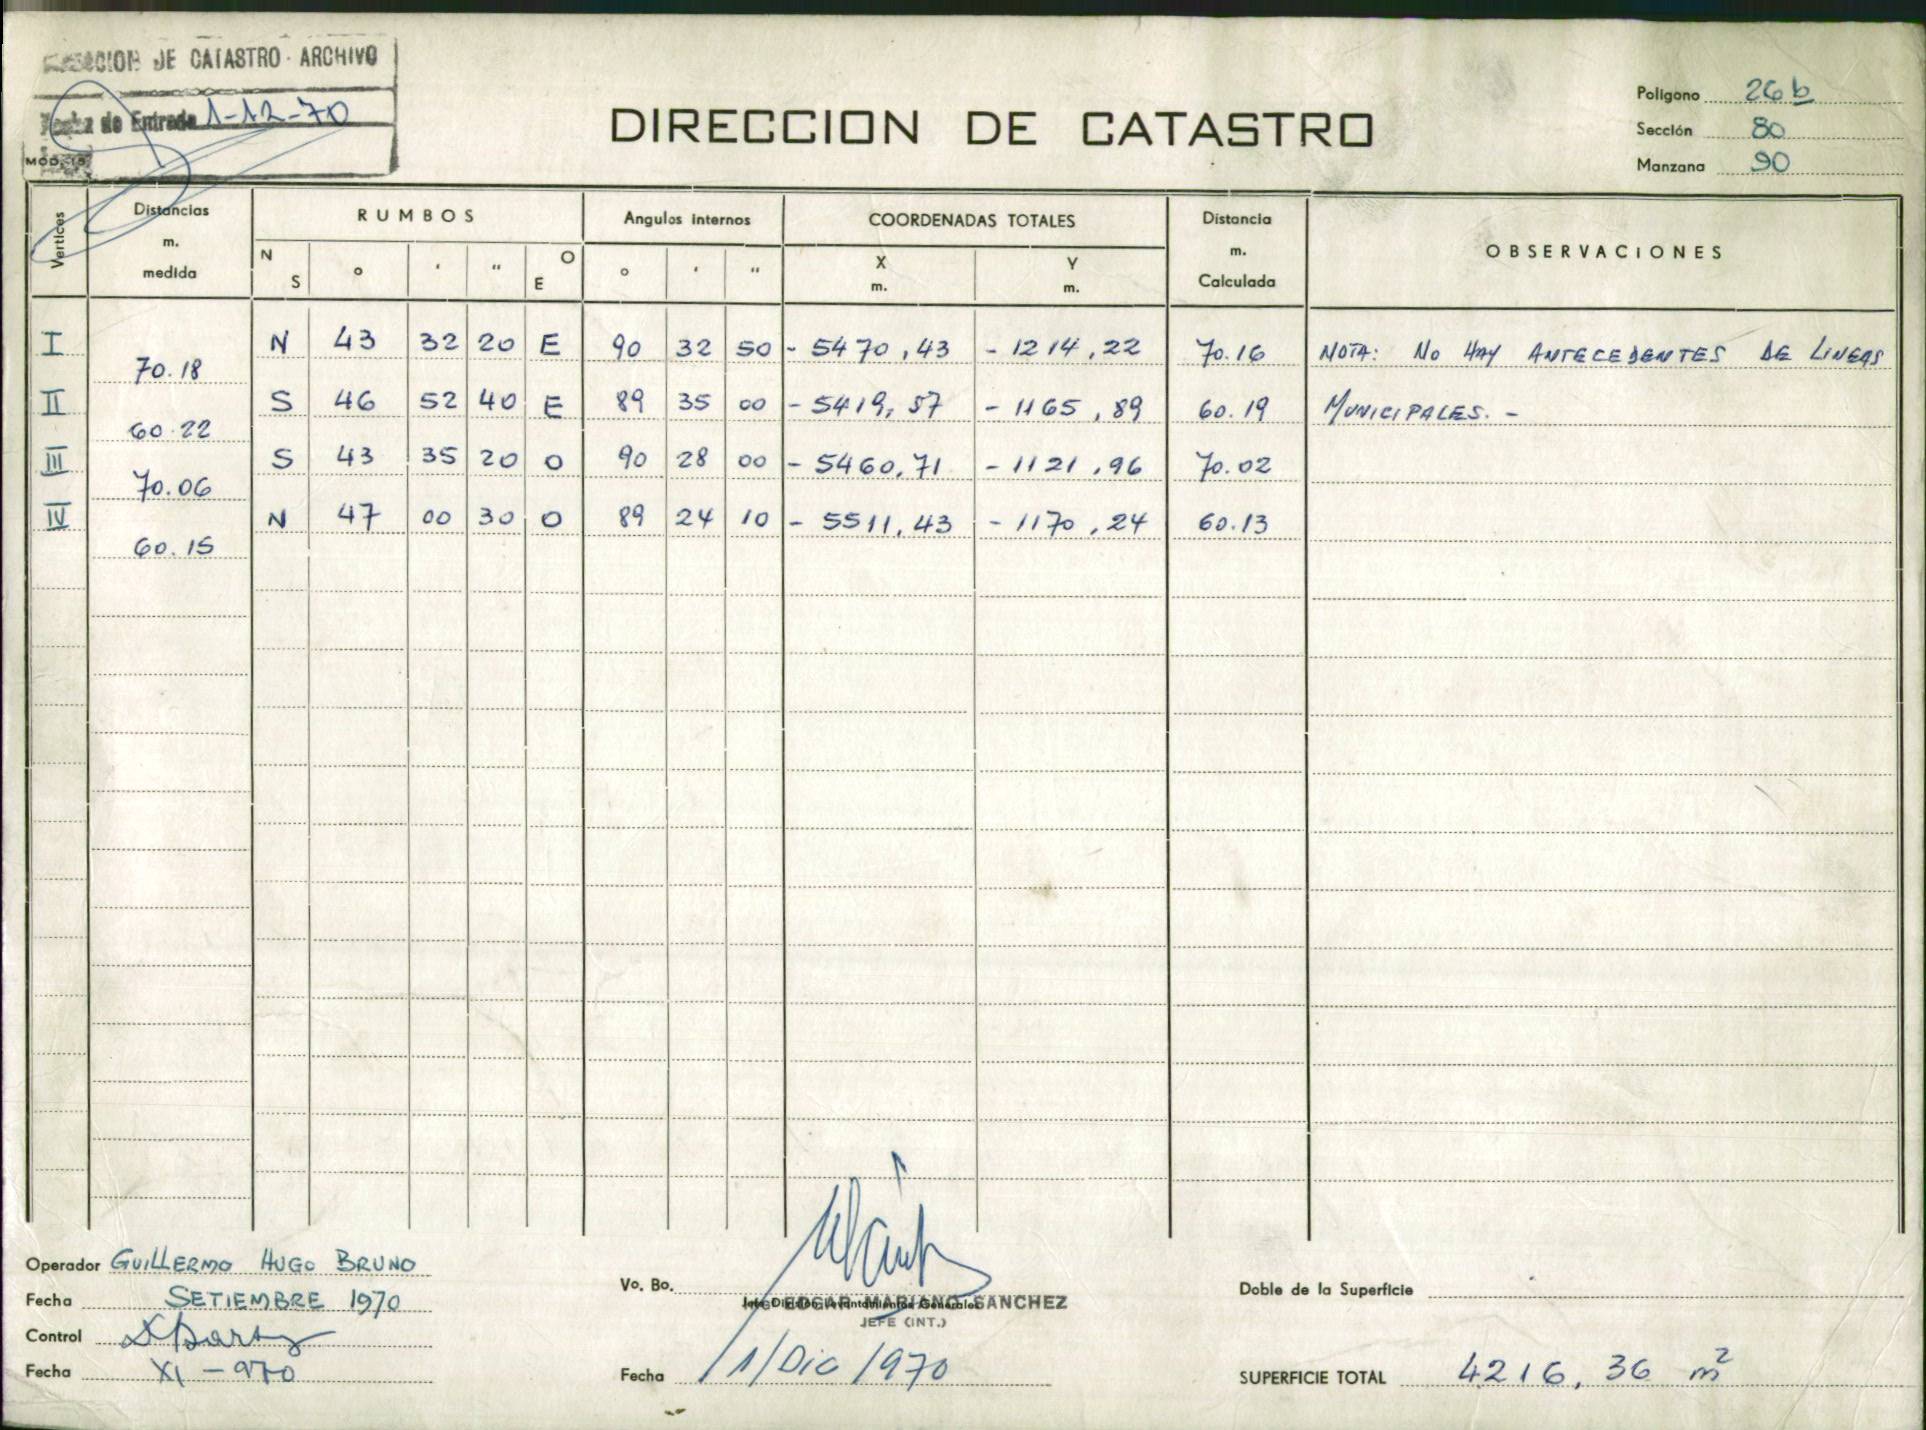 DE CATASTRO - ARCHIVO
Fecha de Entrada 1-12-70
MOD. 15
DIRECCION DE CATASTRO
Poligono 26b
Sección 80
Manzana 90
Vertices
Distancias m. medida
RUMBOS
N S ° ' " O E
Angulos internos
° ' "
COORDENADAS TOTALES
X m.
Y m.
Distancia m. Calculada
OBSERVACIONES
I N 43 32 20 E 90 32 50 - 5470,43 - 1214,22 70.16 NOTA: No HAY ANTECEDENTES DE LINEAS
70.18
II S 46 52 40 E 89 35 00 - 5419,57 - 1165,89 60.19 MUNICIPALES. -
60.22
III S 43 35 20 O 90 28 00 - 5460,71 - 1121,96 70.02
70.06
IV N 47 00 30 O 89 24 10 - 5511,43 - 1170,24 60.13
60.15
Operador GUILLERMO HUGO BRUNO
Fecha SETIEMBRE 1970
Control
Fecha XI - 970
Vo. Bo.
Jefe División Levantamientos Generales
EDGAR MARIANO SANCHEZ
JEFE (INT.)
Fecha 1/Dic/1970
Doble de la Superficie
SUPERFICIE TOTAL 4216,36 m²